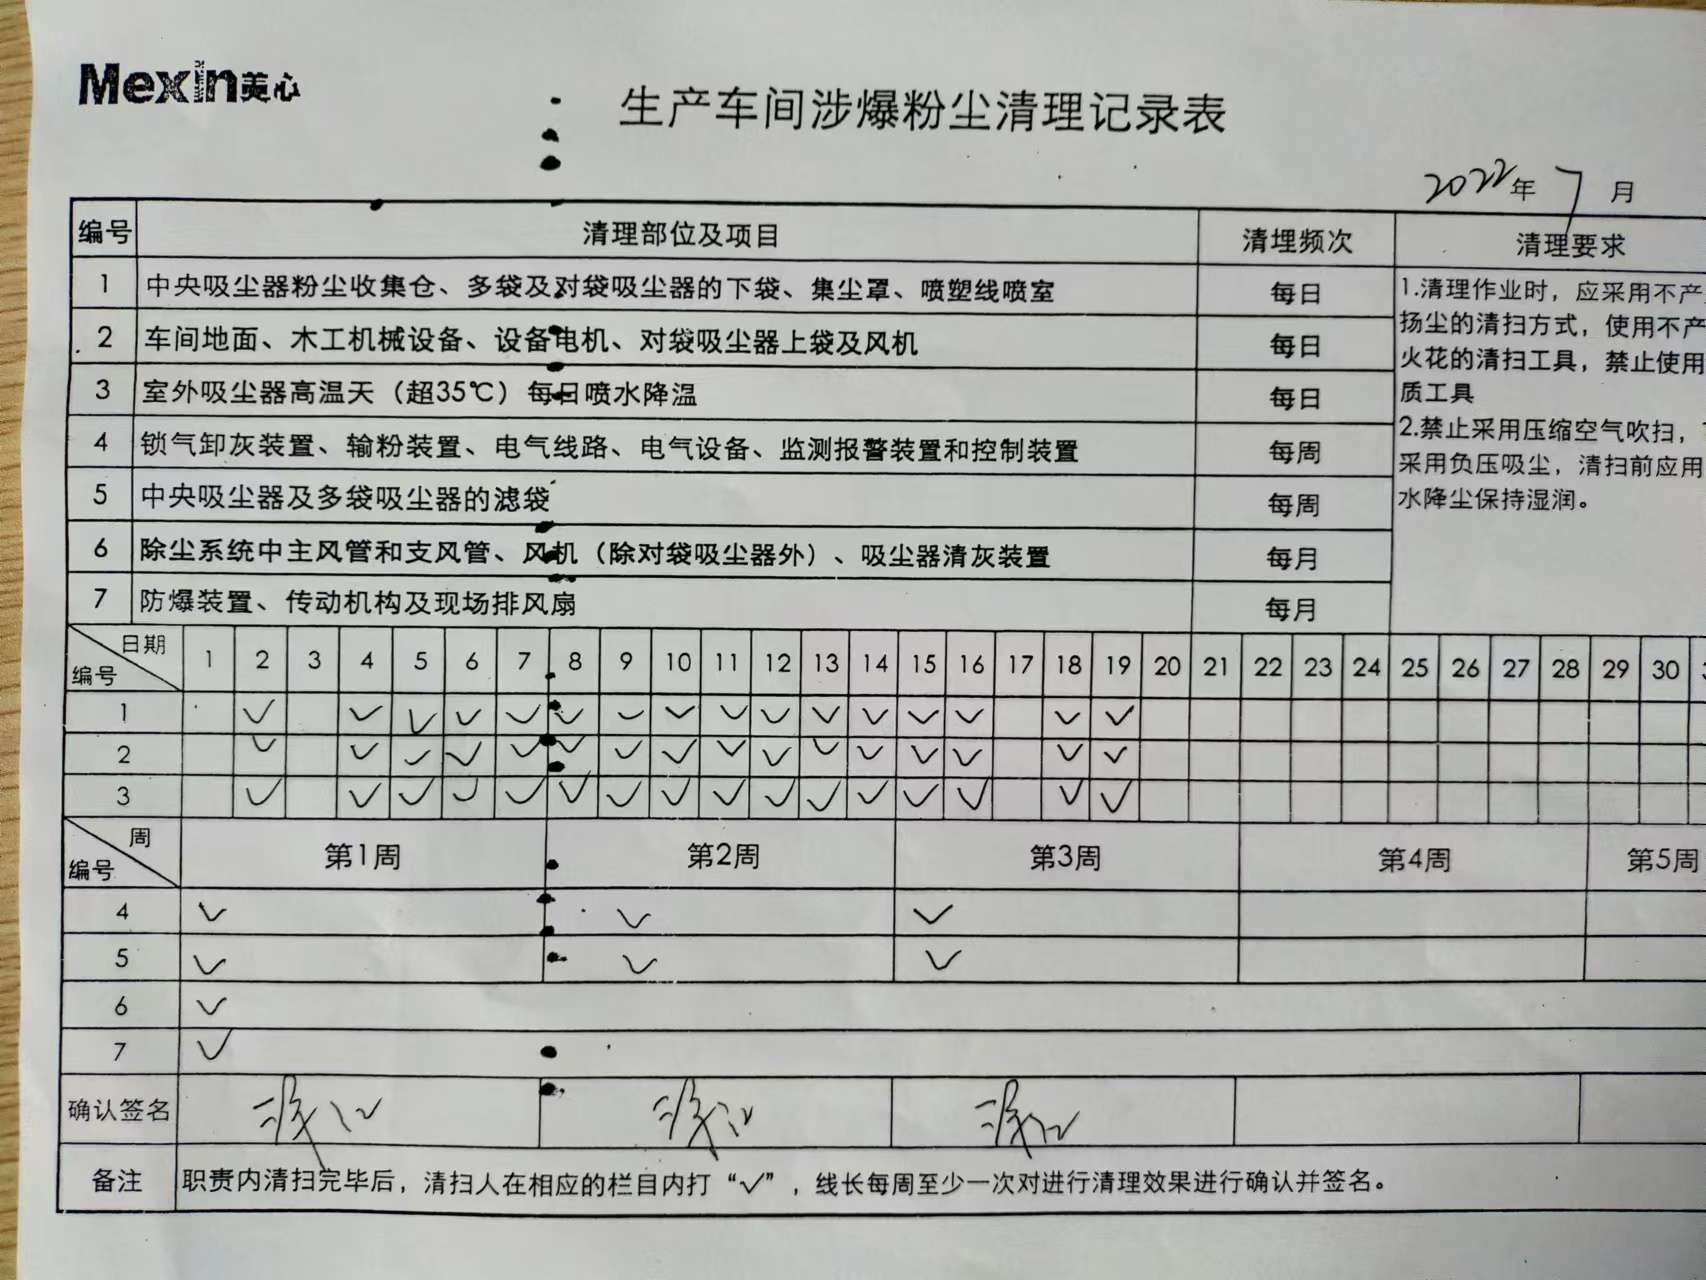 Mexin美心
生产车间涉爆粉尘清理记录表
2022年 7 月
编号 清理部位及项目 清埋频次 清理要求
1 中央吸尘器粉尘收集仓、多袋及对袋吸尘器的下袋、集尘罩、喷塑线喷室 每日
2 车间地面、木工机械设备、设备电机、对袋吸尘器上袋及风机 每日
3 室外吸尘器高温天（超35℃）每日喷水降温 每日
4 锁气卸灰装置、输粉装置、电气线路、电气设备、监测报警装置和控制装置 每周
5 中央吸尘器及多袋吸尘器的滤袋 每周
6 除尘系统中主风管和支风管、风机（除对袋吸尘器外）、吸尘器清灰装置 每月
7 防爆装置、传动机构及现场排风扇 每月
1.清理作业时，应采用不产
扬尘的清扫方式，使用不产
火花的清扫工具，禁止使用
质工具
2.禁止采用压缩空气吹扫，
采用负压吸尘，清扫前应用
水降尘保持湿润。
日期 编号 1 2 3 4 5 6 7 8 9 10 11 12 13 14 15 16 17 18 19 20 21 22 23 24 25 26 27 28 29 30
1 ✓ ✓ ✓ ✓ ✓ ✓ ✓ ✓ ✓ ✓ ✓ ✓ ✓ ✓ ✓ ✓
2 ✓ ✓ ✓ ✓ ✓ ✓ ✓ ✓ ✓ ✓ ✓ ✓ ✓ ✓ ✓ ✓
3 ✓ ✓ ✓ ✓ ✓ ✓ ✓ ✓ ✓ ✓ ✓ ✓ ✓ ✓ ✓ ✓
周 编号 第1周 第2周 第3周 第4周 第5周
4 ✓ ✓ ✓
5 ✓ ✓ ✓
6 ✓
7 ✓
确认签名
备注 职责内清扫完毕后，清扫人在相应的栏目内打“✓”，线长每周至少一次对进行清理效果进行确认并签名。